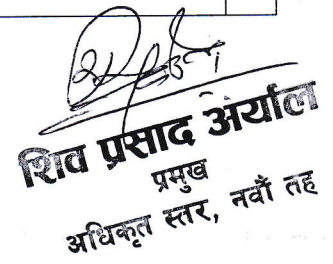 शिव प्रसाद अर्याल
प्रमुख
अधिकृत स्तर, नवौं तह